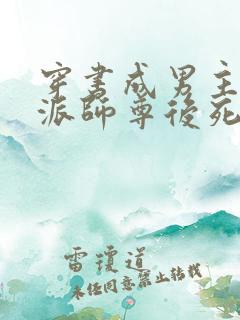 穿书成男主
派师尊後死
雷琼道
未经同意禁止转载